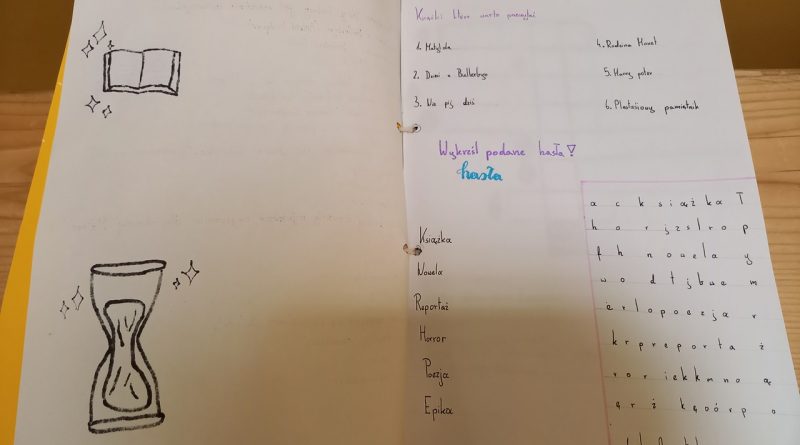 warto
1. Matylda
2. Dzieci z Bullerbyn
3.
4. Rodzina Monet
5. Harry poter
6. Plastusiowy pamiętnik
Wykreśl podane hasła!
hasła
Książka
Nowela
Reportaż
Horror
Poezja
Epika
a c k s i ą ż k a T
h o r j z s l r o p
f h n o w e l a y
w o d t j b w e m
e r l o p o e z j a r
k r p r e p o r t a ż
r o r i e k k m n o ą
ę r ż k ę o ó r p o